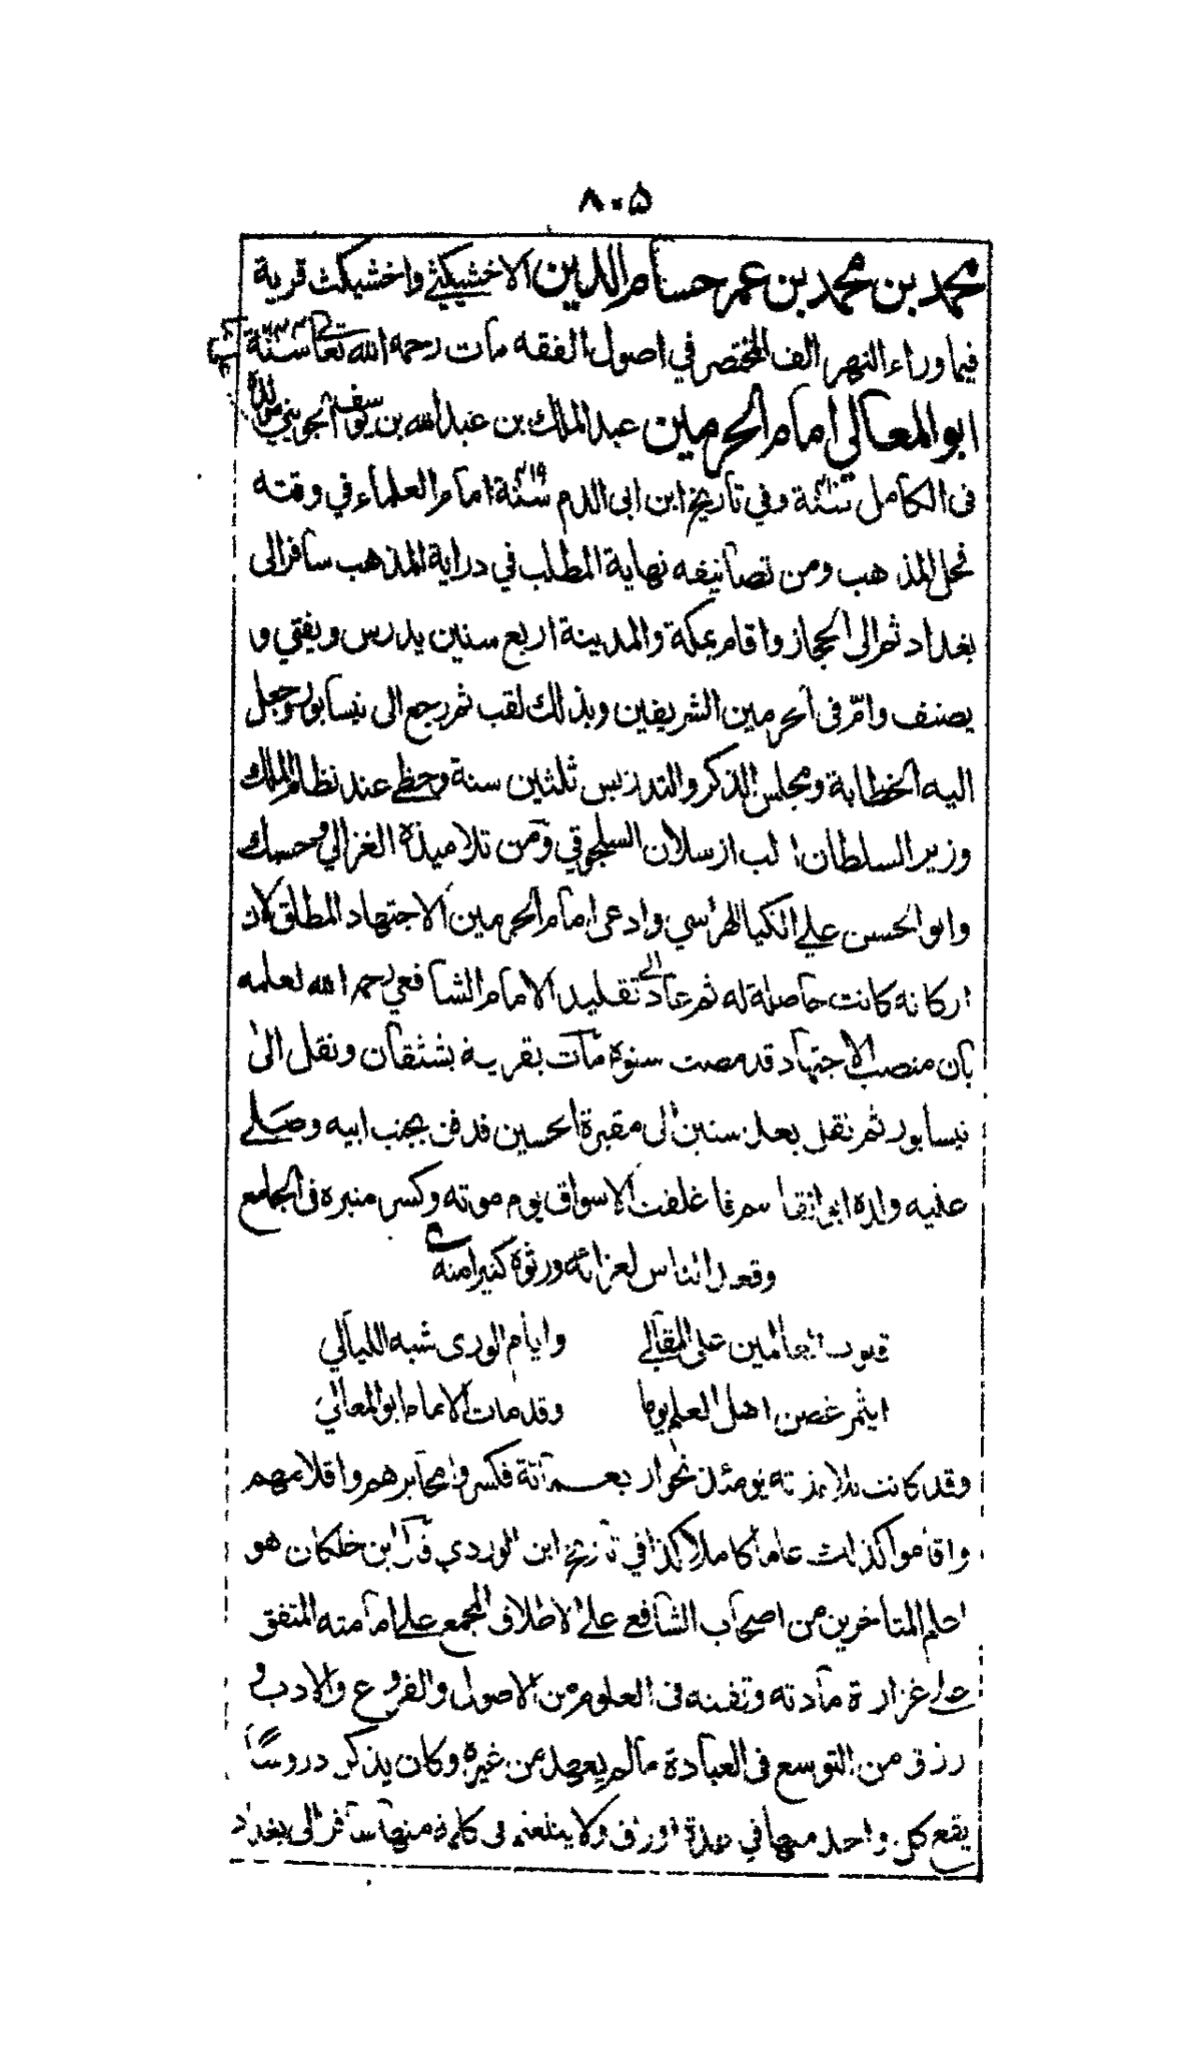 ٨٠۵
محمد بن محمد بن عمر حسام الدين الاخشيكثي واخشيكث قرية
فيما وراء النهر الف المختصر في اصول الفقه مات رحمه الله تعا سنة
ابو المعالي امام الحرمين عبد الملك بن عبد الله بن يوسف الجويني مولده
فى الكامل سنة وفي تاريخ ابن ابى الدم سنة امام العلماء في وقته
فحل المذهب ومن تصانيفه نهاية المطلب في دراية المذهب سافر الى
بغداد ثم الى الحجاز واقام بمكة والمدينة اربع سنين يدرس ويفتي و
يصنف وامّ فى الحرمين الشريفين وبذلك لقب ثم رجع الى نيسابور وجعل
اليه الخطابة ومجلس الذكر والتدريس ثلثين سنة وحظي عند نظام الملك
وزير السلطان الب ارسلان السلجوقي ومن تلاميذه الغزالي وحسبك
وابو الحسن علي الكيا الهراسي وادعى امام الحرمين الاجتهاد المطلق لان
اركانه كانت حاصلة له ثم عاد الى تقليد الامام الشافعي رحمه الله لعلمه
بان منصب الاجتهاد قد مضت سنوه مات بقرية بشتقان ونقل الى
نيسابور ثم نقل بعد سنين الى مقبرة الحسين فدفن بجنب ابيه وصلى
عليه ولده ابو القاسم فاغلقت الاسواق يوم موته وكسر منبره فى الجامع
وقعد الناس لعزائه ورثوه كثيرا منه
قلوب العالمين على المقالي وايام الورى شبه الليالي
ايثمر غصن اهل العلم يوما وقد مات الامام ابو المعالي
وقد كانت تلامذته يومئذ نحو اربعمائة فكسروا محابرهم واقلامهم
واقاموا كذلك عاما كاملا كذا في تاريخ ابن الوردي قال ابن خلكان هو
اعلم المتاخرين من اصحاب الشافعي على الاطلاق المجمع على امامته المتفق
على غزارة مادته وتفننه فى العلوم من الاصول والفروع والادب و
رزق من التوسع فى العبادة مالم يعهد من غيره وكان يذكر دروسًا
يقع كل واحد منها في عدة اوراق ولا يتلعثم فى كلمة منها سافر الى بغداد